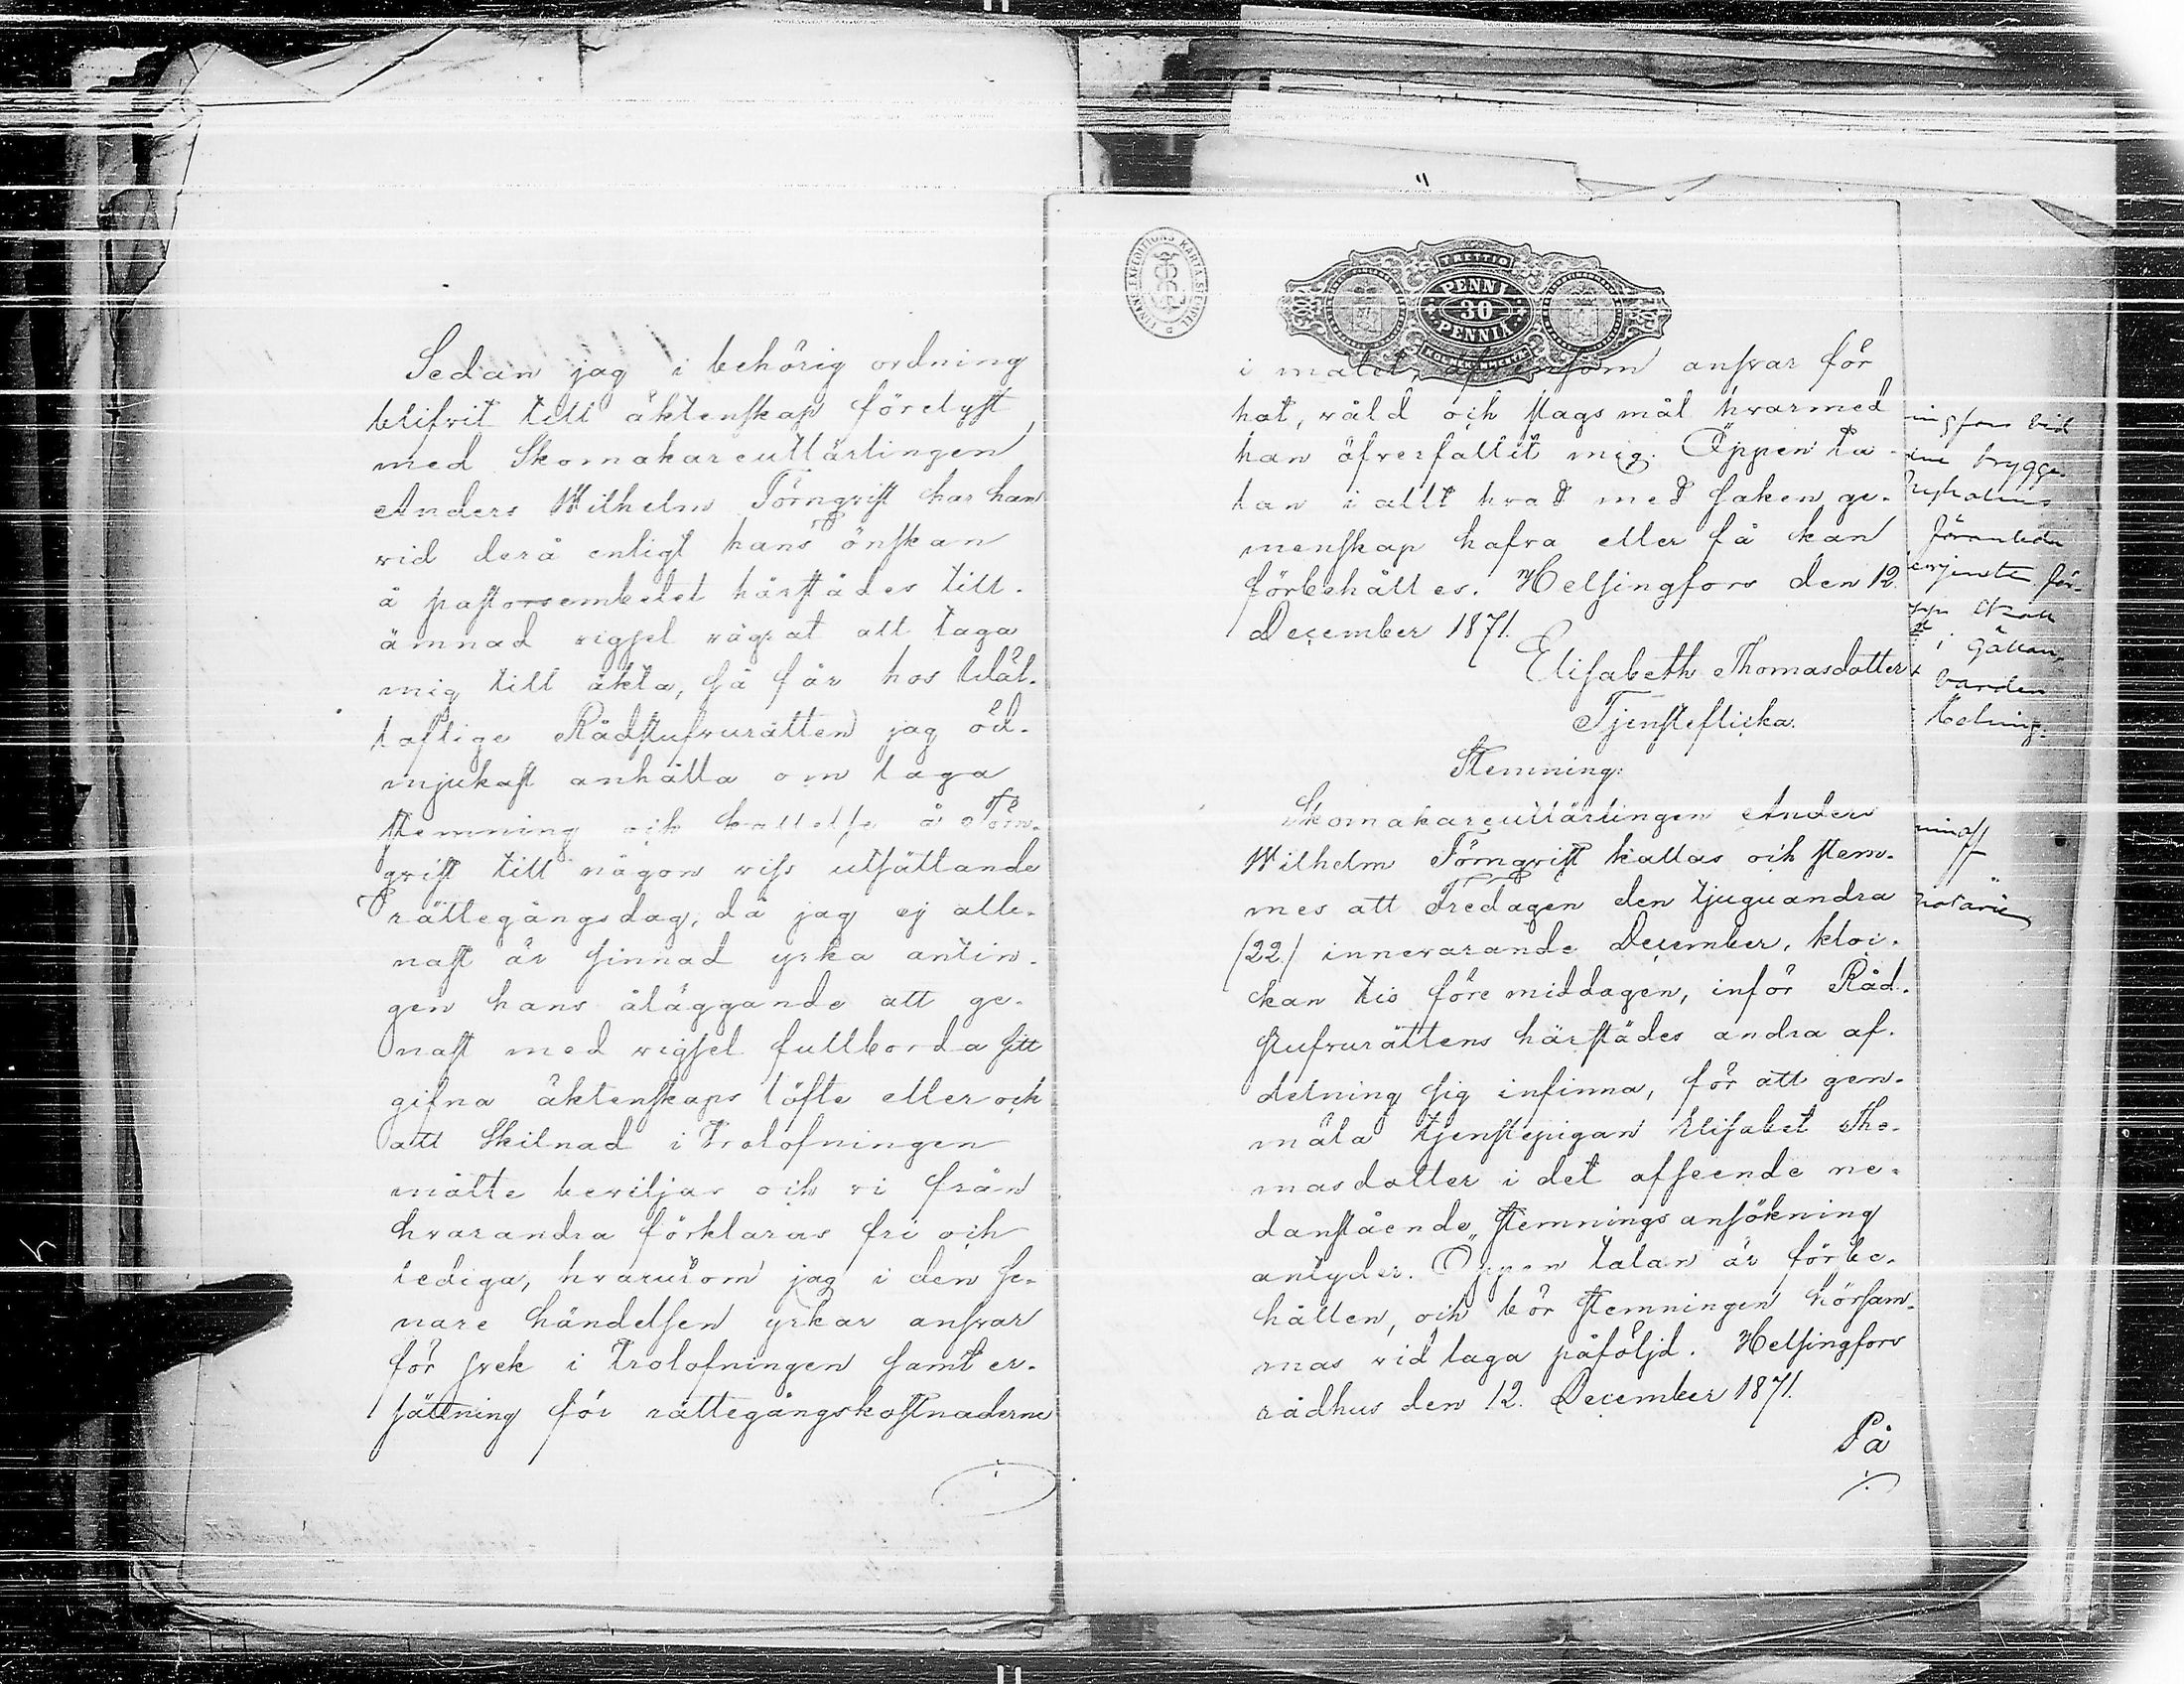 Sedan jag i behörig ordning
blifvit till äktenskap förelyst
med Skomakareutlärlingen
Anders Wilhelm Törnqvist har han
vid derå enligt hans önskan
å pastorsembetet härstädes till-
ämnad vigsel vägrat att taga
mig till äkta, så får hos Wäl-
loflige Rådstufvurätten jag öd-
mjukast anhålla om laga
stemning och kallelse å Törn-
qvist till någon viss utsättande
rättegångsdag, då jag ej alle-
nast är sinnad yrka antin-
gen hans åläggande att ge-
nast med vigsel fullborda sitt
gifna äktenskaps löfte eller ock
att Skilnad i trolofningen
måtte beviljas och vi från
hvarandra förklaras fri och
lediga, hvarutom jag i den se-
nare händelsen yrkar ansvar
för svek i trolofningen samt er-
sättning för rättegångskostnaderne
i
FINANS EXPEDITIONS KARTA STEMPEL
TRETTIO
PENNI
30
PENNIÄ
i målet, äfvensom ansvar för
hot, våld och slagsmål hvarmed
han öfverfallit mig. Öppen ta-
lan i allt hvad med saken ge-
menskap hafva eller få kan
förbehålles. Helsingfors den 12
December 1871.
Elisabeth Thomasdotter
Tjensteflicka.
Stemning:
Skomakareutlärlingen Anders
Wilhelm Törnqvist kallas och stem-
mes att Fredagen den tjuguandra
(22) innevarande December, kloc-
kan tio före middagen, inför Råd-
stufvurättens härstädes andra af-
delning sig infinna, för att gen-
mäla tjenstepigan Elisabet Tho-
masdotter i det afseende ne-
danstående stemningsansökning
antyder. Öppen talan är förbe-
hållen, och bör stemningen hörsam-
mas vid laga påföljd. Helsingfors
rådhus den 12. December 1871.
På
ingfors vid
brygge-
i
notarie